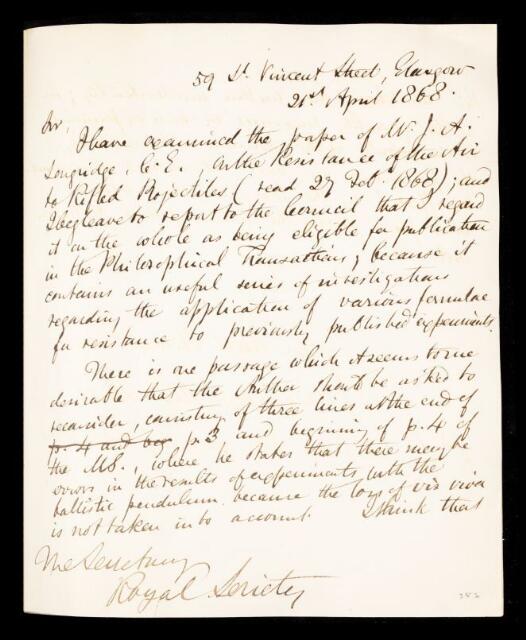 59 St. Vincent Street, Glasgow
21st April 1868.
Sir,
I have examined the paper of Mr. J. A.
Longridge, C.E. On the Resistance of the Air
to Rifled Projectiles (read 27 Feb. 1868); and
I beg leave to report to the Council that I regard
it on the whole as being eligible for publication
in the Philosophical Transactions; because it
contains an useful series of investigations
regarding the application of various formulae
for resistance to previously published experiments.
There is one passage which it seems to me
desirable that the Author should be asked to
reconsider, consisting of three lines at the end of
p. 4 and beg p. 3 and beginning of p. 4 of
the MS., where he states that there may be
errors in the results of experiments with the
ballistic pendulum because the loss of vis viva
is not taken into account. I think that
The Secretary
Royal Society